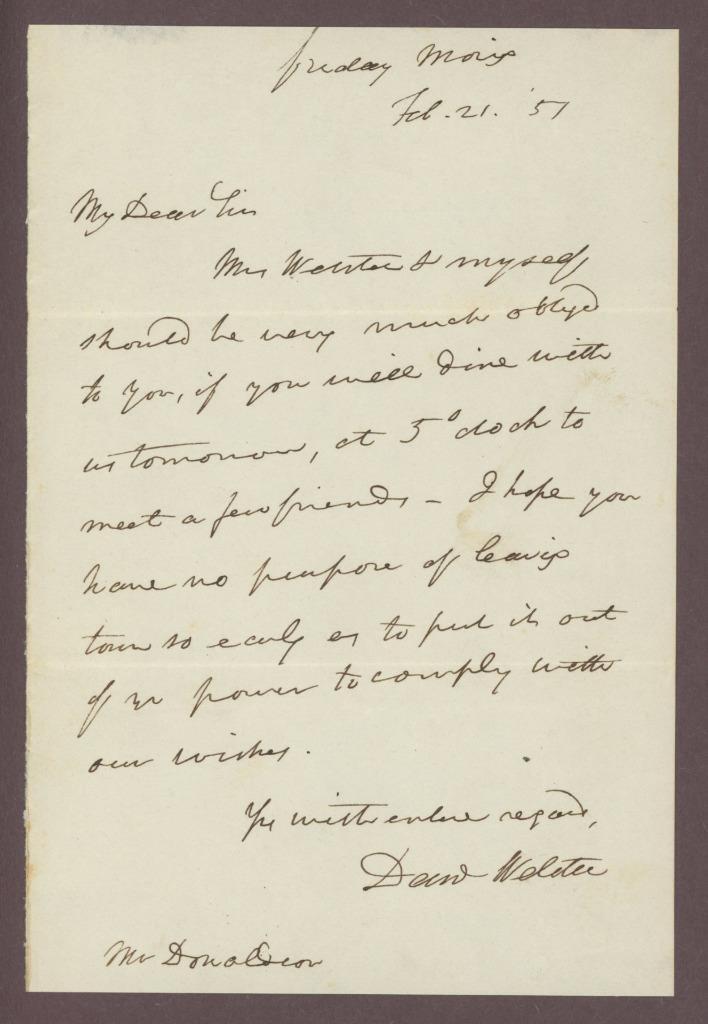 Friday Morng
Feb. 21. '51
My Dear Sir
Mrs Webster & myself
should be very much obliged
to you, if you will dine with
us tomorrow, at 5 o'clock to
meet a few friends - I hope you
have no purpose of leaving
town so early as to put it out
of yr power to comply with
our wishes.
Yrs with entire regard,
Danl Webster
Mr Donaldson